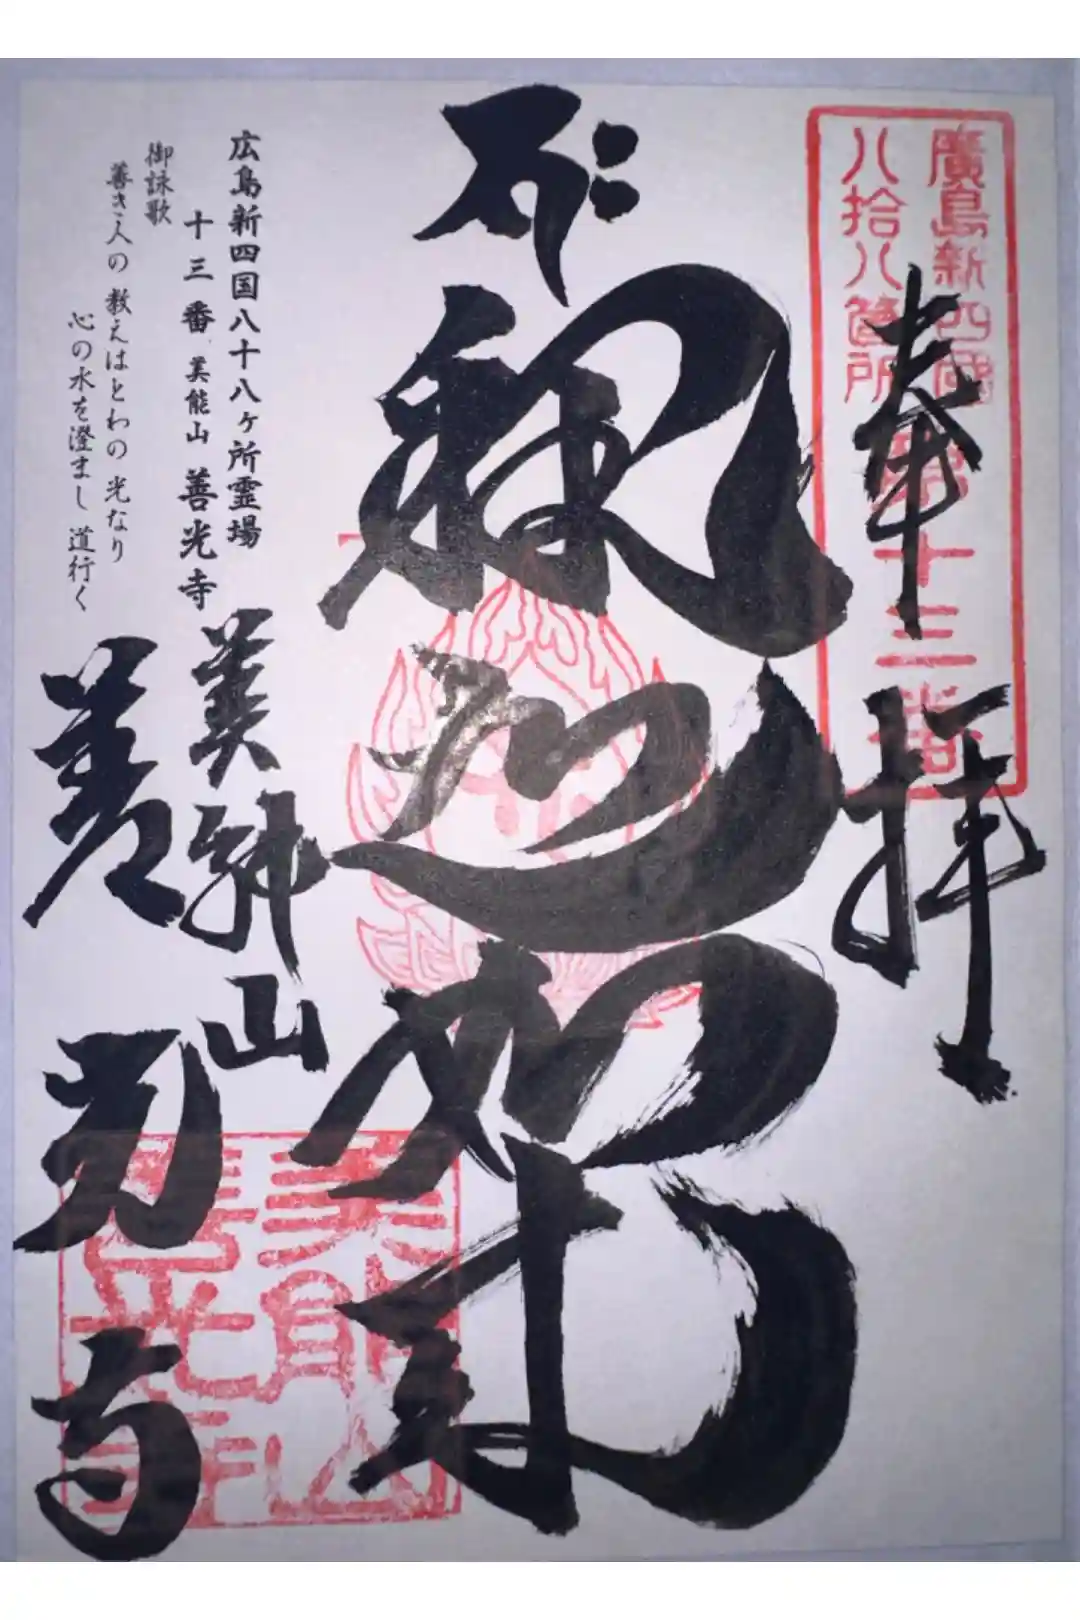 廣島新四國
八拾八箇所
第十三番
奉拝
阿弥陀如来
広島新四国八十八ヶ所霊場
十三番 美能山 善光寺
御詠歌
善き人の 教えはとわの 光なり
心の水を澄まし 道行く
美能山
善光寺
美能山
善光寺印